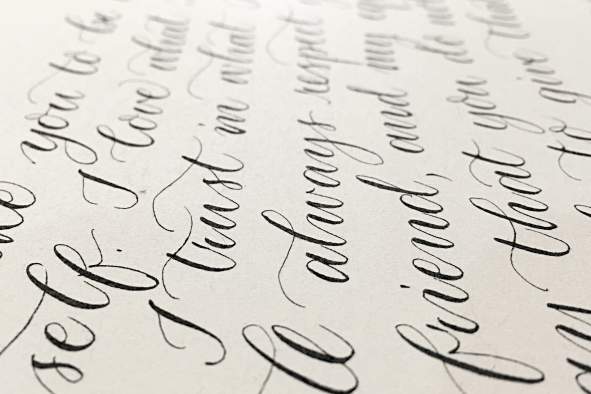 you to be
self. I love what
I trust in what
always respect
friend, and my
that you do
to give